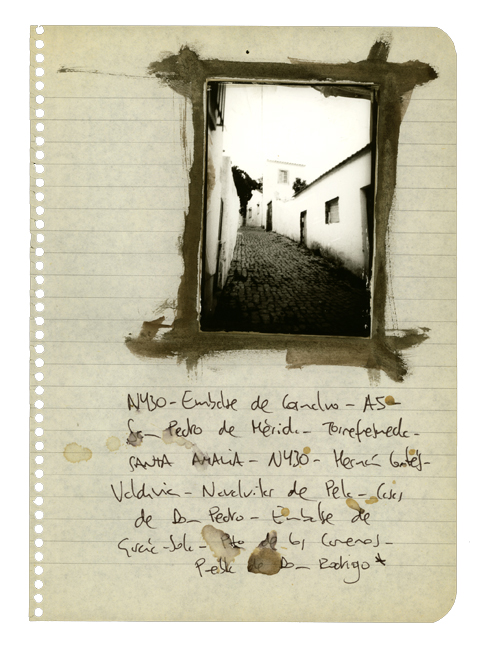 N430 - Embalse de Cornalvo - A5 -
San Pedro de Mérida - Torrefresneda -
SANTA AMALIA - N430 - Hernán Cortés -
Valdivia - Navalvillar de Pela - Casas
de Don Pedro - Embalse de
García-Sola - Pto de los Carneros -
Peña de Don Rodrigo *